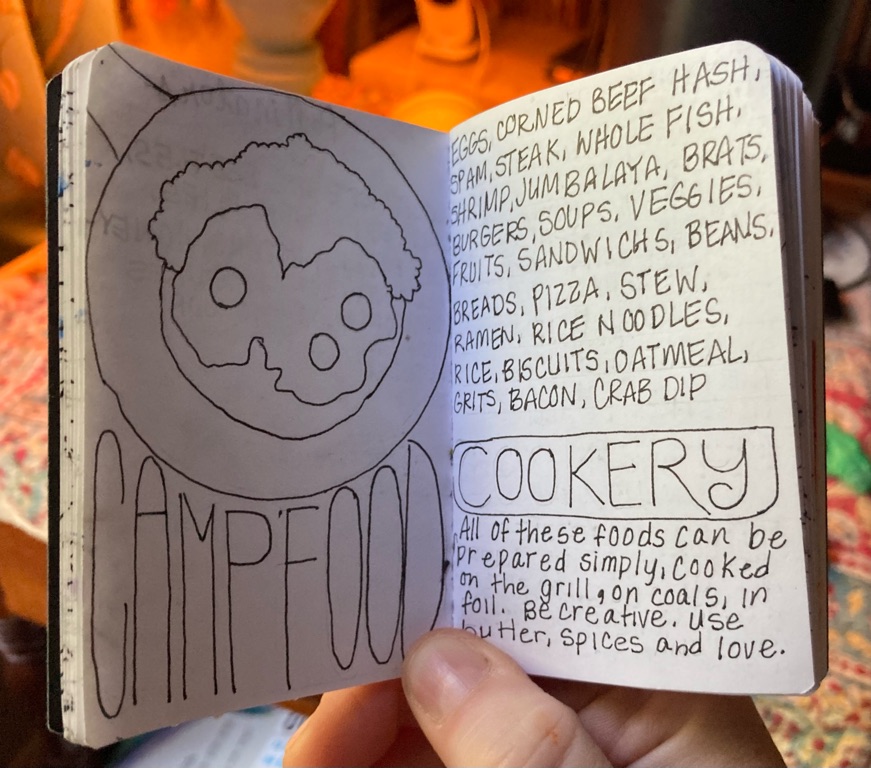 CAMP'FOOD
EGGS, CORNED BEEF HASH,
SPAM, STEAK, WHOLE FISH,
SHRIMP, JUMBALAYA, BRATS,
BURGERS, SOUPS, VEGGIES,
FRUITS, SANDWICHS, BEANS,
BREADS, PIZZA, STEW,
RAMEN, RICE NOODLES,
RICE, BISCUITS, OATMEAL,
GRITS, BACON, CRAB DIP
COOKERY
All of these foods can be
prepared simply, cooked
on the grill, on coals, in
foil. Be creative. Use
butter, spices and love.